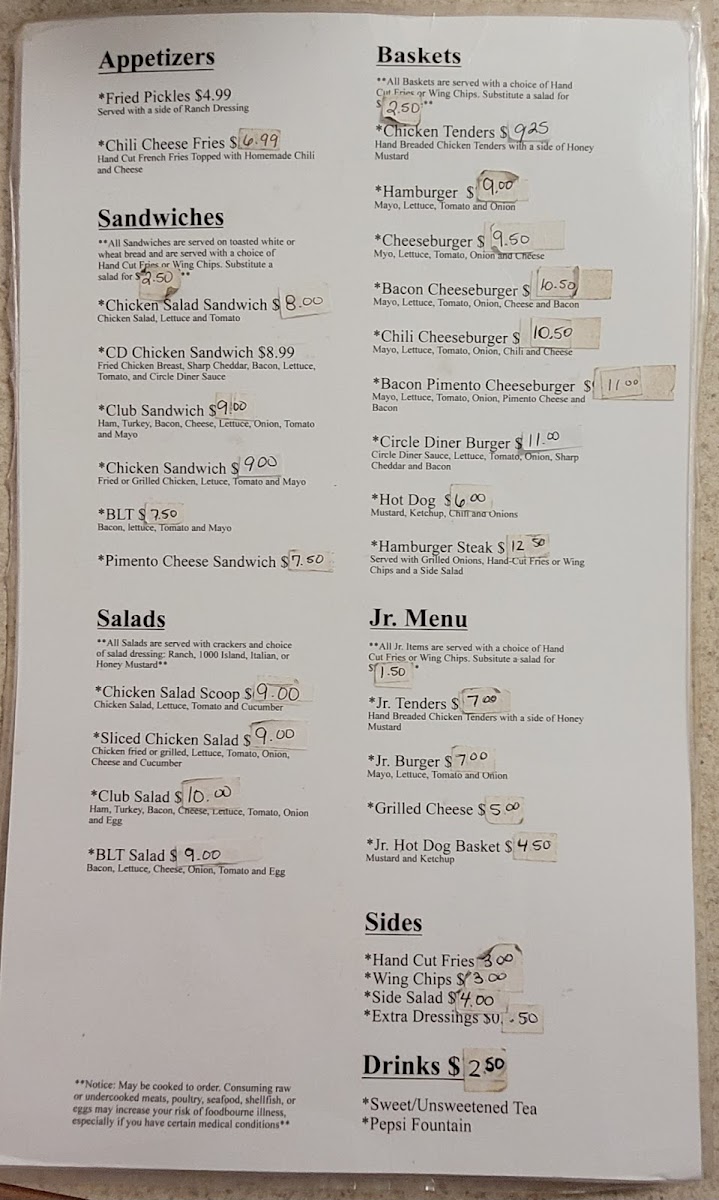 Appetizers
*Fried Pickles $4.99
Served with a side of Ranch Dressing
*Chili Cheese Fries $6.99
Hand Cut French Fries Topped with Homemade Chili
and Cheese
Sandwiches
**All Sandwiches are served on toasted white or
wheat bread and are served with a choice of
Hand Cut Fries or Wing Chips. Substitute a
salad for $2.50**
*Chicken Salad Sandwich $8.00
Chicken Salad, Lettuce and Tomato
*CD Chicken Sandwich $8.99
Fried Chicken Breast, Sharp Cheddar, Bacon, Lettuce,
Tomato, and Circle Diner Sauce
*Club Sandwich $9.00
Ham, Turkey, Bacon, Cheese, Lettuce, Onion, Tomato
and Mayo
*Chicken Sandwich $900
Fried or Grilled Chicken, Letuce, Tomato and Mayo
*BLT $7.50
Bacon, lettuce, Tomato and Mayo
*Pimento Cheese Sandwich $7.50
Salads
**All Salads are served with crackers and choice
of salad dressing: Ranch, 1000 Island, Italian, or
Honey Mustard**
*Chicken Salad Scoop $9.00
Chicken Salad, Lettuce, Tomato and Cucumber
*Sliced Chicken Salad $9.00
Chicken fried or grilled, Lettuce, Tomato, Onion,
Cheese and Cucumber
*Club Salad $10.00
Ham, Turkey, Bacon, Cheese, Lettuce, Tomato, Onion
and Egg
*BLT Salad $9.00
Bacon, Lettuce, Cheese, Onion, Tomato and Egg
**Notice: May be cooked to order. Consuming raw
or undercooked meats, poultry, seafood, shellfish, or
eggs may increase your risk of foodbourne illness,
especially if you have certain medical conditions**
Baskets
**All Baskets are served with a choice of Hand
Cut Fries or Wing Chips. Substitute a salad for
$2.50**
*Chicken Tenders $925
Hand Breaded Chicken Tenders with a side of Honey
Mustard
*Hamburger $9.00
Mayo, Lettuce, Tomato and Onion
*Cheeseburger $9.50
Myo, Lettuce, Tomato, Onion and Cheese
*Bacon Cheeseburger $10.50
Mayo, Lettuce, Tomato, Onion, Cheese and Bacon
*Chili Cheeseburger $10.50
Mayo, Lettuce, Tomato, Onion, Chili and Cheese
*Bacon Pimento Cheeseburger $11 00
Mayo, Lettuce, Tomato, Onion, Pimento Cheese and
Bacon
*Circle Diner Burger $11.00
Circle Diner Sauce, Lettuce, Tomato, Onion, Sharp
Cheddar and Bacon
*Hot Dog $6 00
Mustard, Ketchup, Chili and Onions
*Hamburger Steak $12 50
Served with Grilled Onions, Hand-Cut Fries or Wing
Chips and a Side Salad
Jr. Menu
**All Jr. Items are served with a choice of Hand
Cut Fries or Wing Chips. Subsitute a salad for
$1.50*
*Jr. Tenders $7 00
Hand Breaded Chicken Tenders with a side of Honey
Mustard
*Jr. Burger $7 00
Mayo, Lettuce, Tomato and Onion
*Grilled Cheese $5.00
*Jr. Hot Dog Basket $4 50
Mustard and Ketchup
Sides
*Hand Cut Fries 3 00
*Wing Chips $3 00
*Side Salad $4.00
*Extra Dressings $0. .50
Drinks $2 50
*Sweet/Unsweetened Tea
*Pepsi Fountain